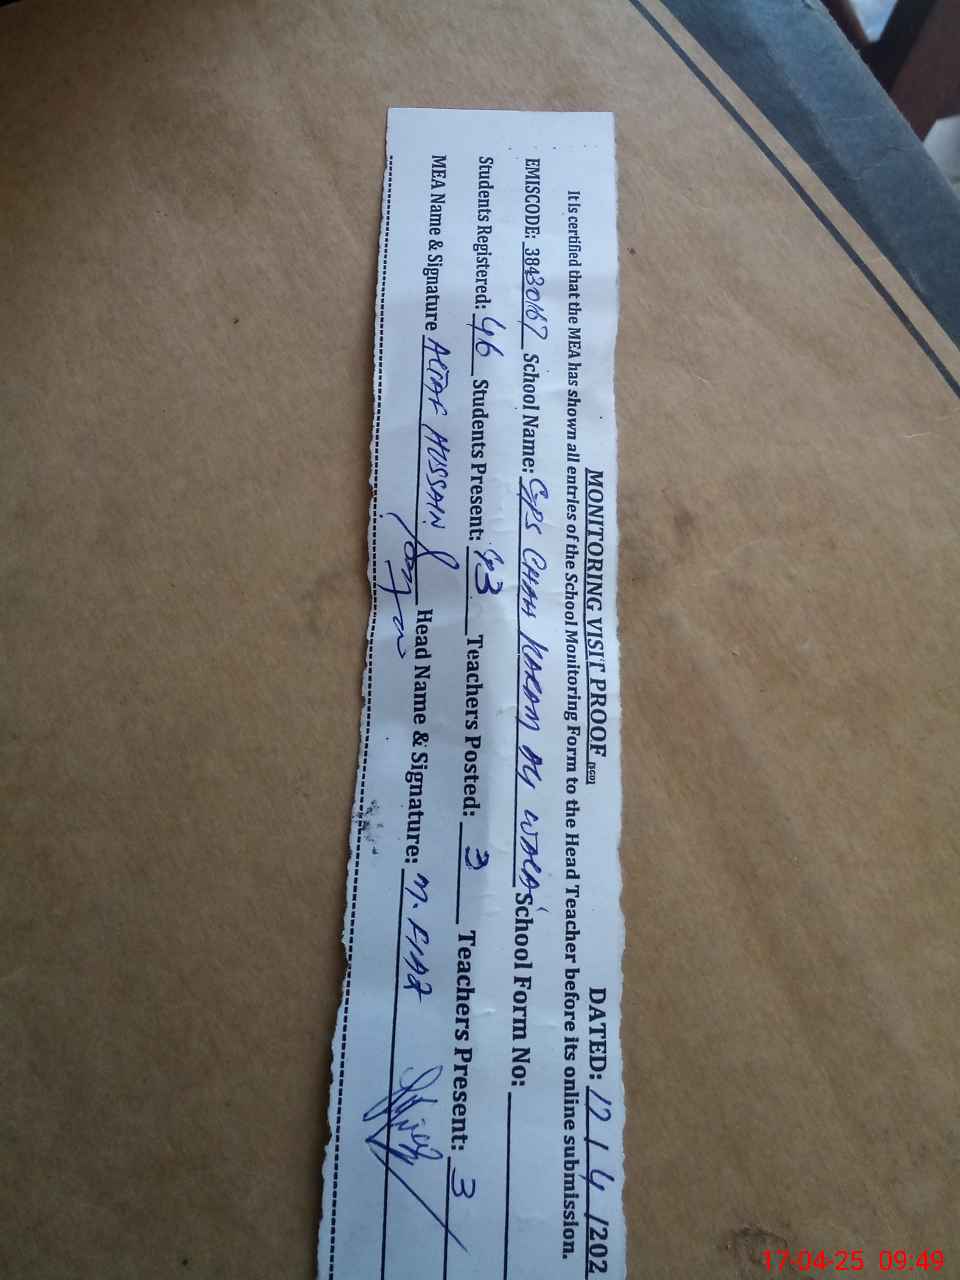 MONITORING VISIT PROOF DATED: 17 / 4 /202
It is certified that the MEA has shown all entries of the School Monitoring Form to the Head Teacher before its online submission.
EMISCODE: 38430167 School Name: GPS CHAH KARAM ALI WALA School Form No:
Students Registered: 46 Students Present: 43 Teachers Posted: 3 Teachers Present: 3
MEA Name & Signature ALTAF HUSSAIN Head Name & Signature: M.
17-04-25 09:49